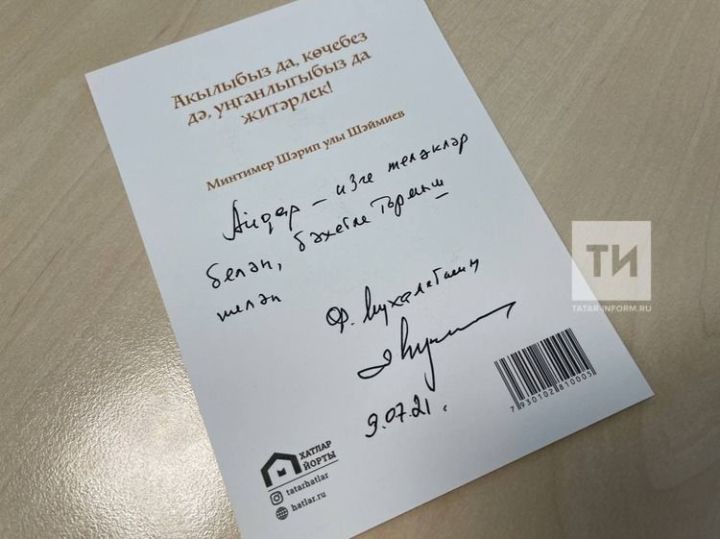 Акылыбыз да, көчебез
дә, уңганлыгыбыз да
җитәрлек!
Минтимер Шәрип улы Шәймиев
Айдар – изге теләкләр
белән, бәхетле тормыш
телән
Ф. Мухаметшин
9.07.21 г.
ТИ
TATAR-INFORM.RU
7930102810005
ХАТЛАР
ЙОРТЫ
tatarhatlar
hatlar.ru